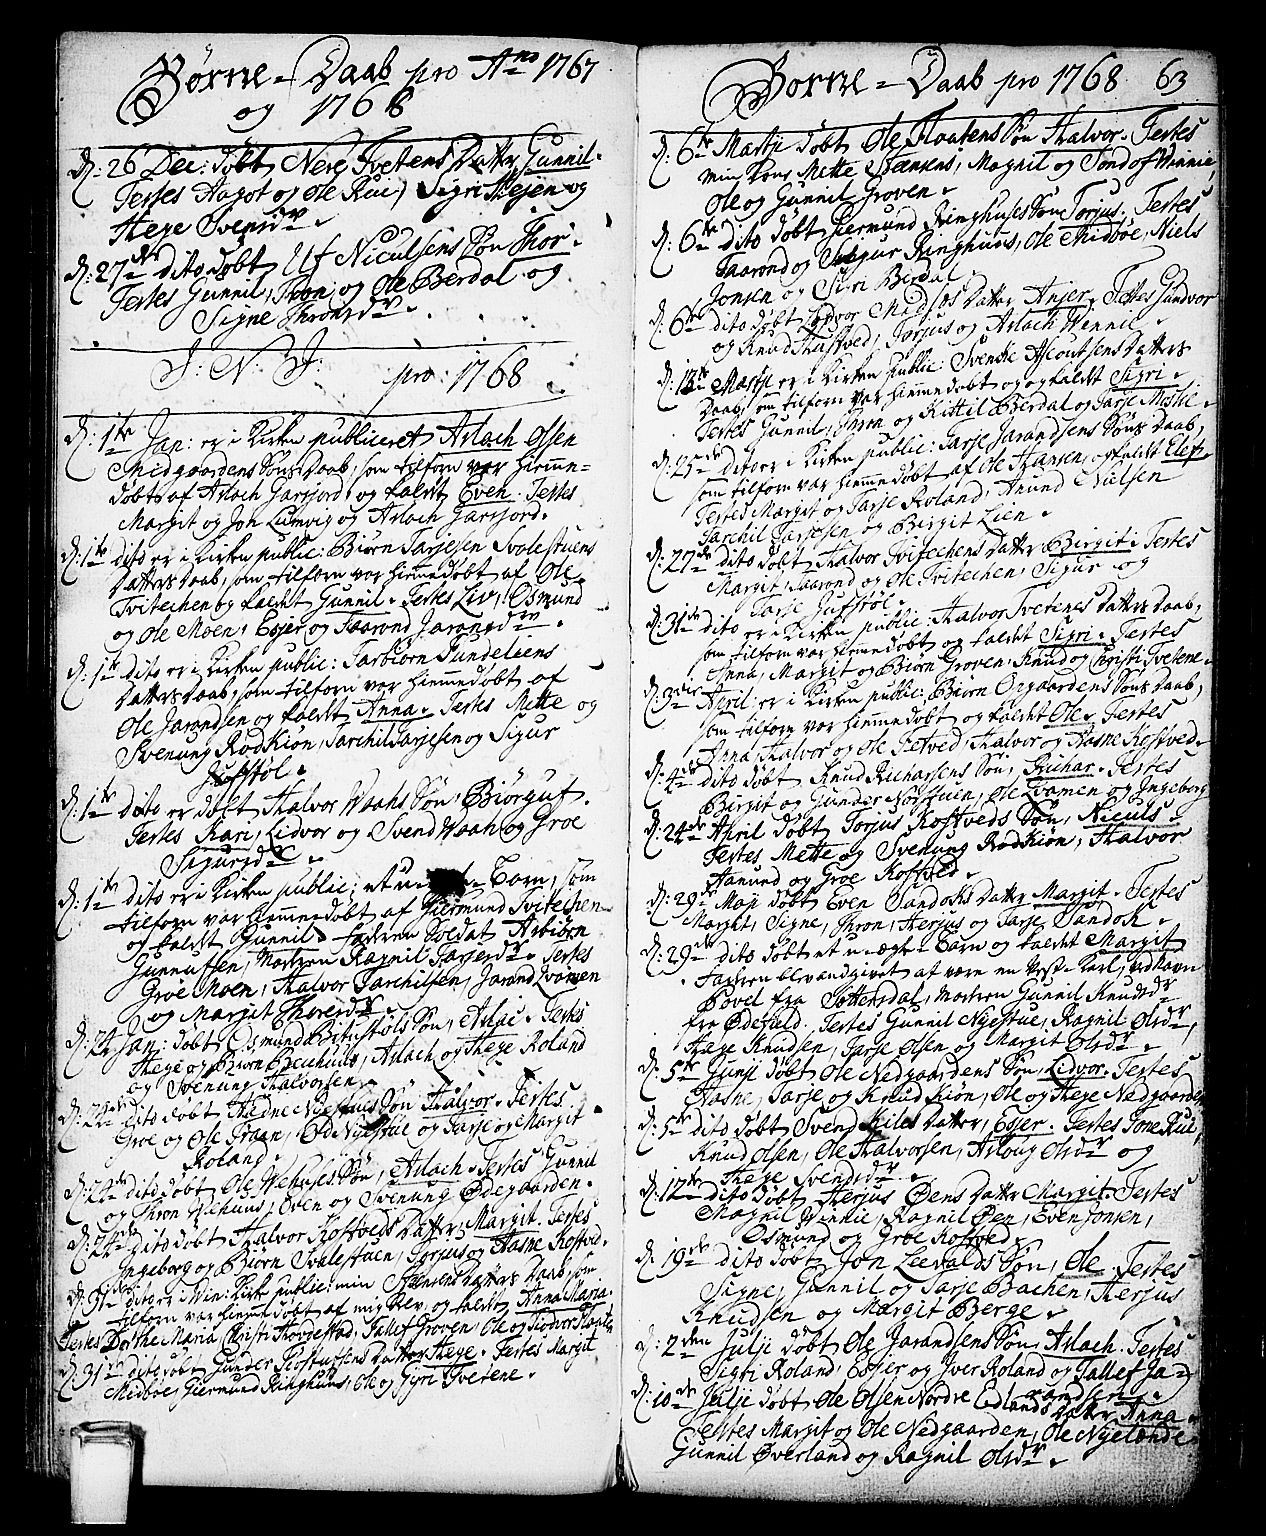 Børne = Daab pro Ano 1767
og 1768
D: 26 Dec: døbt Nere Tvetens Datter Gunnil.
Testes Aagot og Ole Rue, Sigri Mejen og
Hege Svensdr.
D: 27de dito døbt Ulf Niculsens Søn Thor.
Testes Gunnil, Tron, og Ole Berdal og
Signe Thronsdr.
J: N: J: pro 1768
D: 1te Jan: er i Kirken publiceret Aslach Olsen
Midgaardens Søns Daab, som tilforn var hiemme-
døbt af Aslach Garsjord, og kaldet Even. Testes
Margit og Jon Lumvig og Aslach Garsjord.
D: 1te dito er i Kirken public: Biørn Tarjesen Svolestuens
Datters Daab, som tilforn var hiemmedøbt af Ole
Tvitechen og kaldet Gunnil. Testes Liv, Osmund
og Ole Moen, Egjer og Taarond Jaransdr.
D: 1te dito er i Kirken public: Tarbiørn Fundeliens
Datters Daab, som tilforn var hiemmedøbt af
Ole Jarandsen og kaldet Anna. Testes Mette og
Svenung Rødkiøn, Tarchil Tarjesen og Sigur
Jufstøl.
D: 1te dito er døbt Halvor Waahs Søn, Biørguf.
Testes Kari, Lidvor og Svend Waah og Groe
Sigursdr.
D: 1te dito er i Kirken public: et u Barn, som
tilforn var hiemmedøbt af Giermund Tvitechen
og kaldet Gunnil, faderen Soldat Asbiørn
Gunnufsen, Moderen Ragnil Tarjesdr. Testes
Groe Moen, Halvor Tarchilsen, Jarand Qvamen
og Margit Thoresdr.
D: 24 Jan: døbt Osmund Bitustøls Søn, Aslac. Testes
Hege og Biørn Brechuus, Aslach og Hege Roland
og Svenung Halvorsen.
D: 24de dito døbt Hedne Nyestuus Søn Halvor. Testes
Groe og Ole Graan, Od Nyestue og Tarje og Margit
Roland.
D: 24de dito døbt Ole Wehuses Søn, Aslach. Testes Gunnil
og Thron Giehuus, Even og Svenung Ødegaarden.
D: 24de dito døbt Halvor Rostveds Datter, Margit. Testes
Ingeborg og Biørn Svalestuen, Torjus og Aasne Rostved.
D: 31te dito er i Win: Kirk public: min Datters Daab som
tilforn var hiemmedøbt af mig Selv, og kaldet Anna Maria.
Testes Dorthe Maria, Christi Hovdestad, Tallef Groven, Ole og Lidvor Flaaten
D: 31te dito døbt Gunder Flostufsens Datter Hege. Testes Margit
Midbøe, Giermund Ringhuus, Ole og Gyri Tvetene.
Børne = Daab pro 1768 63
D: 6te Martji døbt Ole Flaatens Søn Halvor. Testes
min Kone Mette, Magnil og Tond of Winnie,
Ole og Gunnil Groven.
D: 6te dito døbt Giermund Ringhuses Søn Torjus. Testes
Taarond og Sigur Ringhuus, Ole Midbøe, Niels
Jonsen og Siri Berdal.
D: 6te dito døbt Datter Anjer. Testes Gundvor
og Knud Hustved, Torjus og Aslach Winnil.
D: 13te Martji er i Kirken public: Svenke Datters
Daab, som tilforn var hiemmedøbt og og kaldet Sigri.
Testes Gunnil, Thron og Kittil Berdal og Tarje Moskie.
D: 25de dito er i Kirken public: Tarje Jarandsens Søns Daab,
som tilforn var hiemmedøbt af Ole Hansen, og kaldet Elef.
Testes Margit og Tarje Roland, Anund Nielsen
Tarchil Tarjesen og Birgit Lien.
D: 27de dito døbt Halvor Tvitechens Datter Birgit. Testes
Margit, Taarond og Ole Tvitechen, Sigur og
Tarje Jufstøl.
D: 31te dito er i Kirken public: Halvor Tvetenes Datters Daab,
som tilforn var hiemmedøbt og kaldet Sigri. Testes
Anna, Margit og Biørn Groven, Knud og Christi Tvetene.
D: 3die April er i Kirken public: Biørn Opgaardens Søns Daab,
som tilforn var hiemmedøbt og kaldet Ole. Testes
Anna, Halvor og Ole Tetved, Halvor og Aasne Rostved.
D: 4de dito døbt Knud Richarsens Søn, Richar. Testes
Birgit og Gunder Nordstuen, Ole Qvamen og Ingeborg
D: 24de April døbt Torjus Rostveds Søn, Niculs.
Testes Mette og Svenung Rødkiøn, Halvor
Aamund og Groe Rostved.
D: 29de Maji døbt Even Sandoks Datter Margit. Testes
Margit, Signe, Thron, Herjus og Tarje Sandok.
D: 29de dito døbt et u-ægte Barn og kaldet Margit
Faderen blev andgivet af være en Karl, ved Navn
Povel fra Sottersdal, Moderen Gunnil Knudsdr
fra Ødefield. Testes Gunnil Nyestue, Ragnil Olsdr,
Hege Knudsen, Tarje Olsen og Margit Olsdr.
D: 5te Junji døbt Ole Nedgaardens Søn, Lidvor. Testes
Aasne, Tarje og Knud Kiøn, Ole og Hege Nedgaarden
D: 5te dito døbt Svend Kiles Datter, Egjer. Testes Tone Rue,
Knud Olsen, Ole Halvorsen, Asloug Olsdr og
Hege Svendsdr.
D: 12te dito døbt Herjus Øens Datter Margit. Testes
Magnil Winnie, Ragnil Øen, Even Jonsen,
Osmund og Groe Rostved.
D: 19de dito døbt Jon Leevalds Søn, Ole. Testes
Signe, Gunnil og Tarje Bachen, Herjus
Knudsen og Margit Berge.
D: 2den Julji døbt Ole Jarandsens Søn, Aslach. Testes
Sigri Roland, Egjer og Iver Roland og Tallef Ja-
randsen.
D: 10de Julji døbt Ole Olsen Nordre Edlands Datter Anna.
Testes Margit og Ole Nedgaarden, Ole Nyelænde
Gunnil Øverland og Ragnil Olsdr.